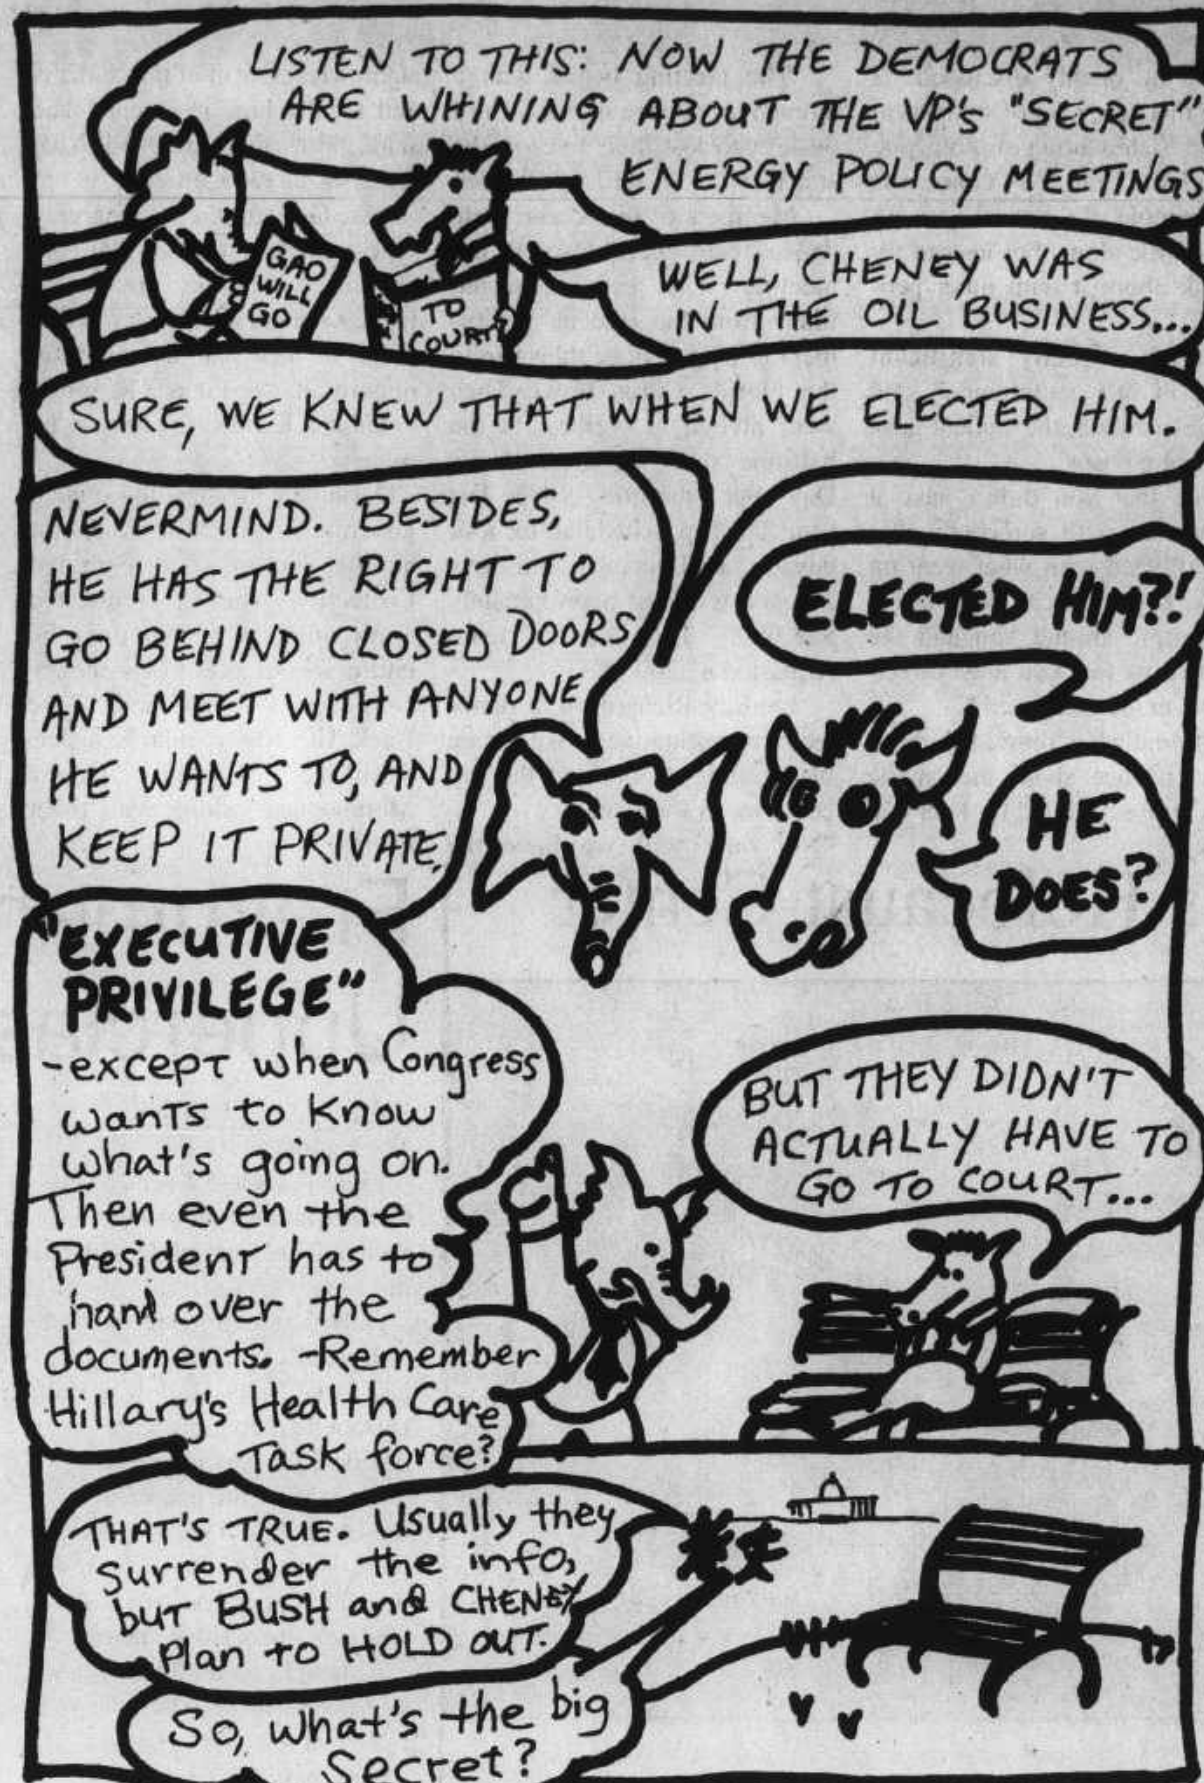 LISTEN TO THIS: NOW THE DEMOCRATS
ARE WHINING ABOUT THE VP's "SECRET"
ENERGY POLICY MEETINGS
GAO
WILL
GO
TO
COURT?
WELL, CHENEY WAS
IN THE OIL BUSINESS...
SURE, WE KNEW THAT WHEN WE ELECTED HIM.
ELECTED HIM?!
NEVERMIND. BESIDES,
HE HAS THE RIGHT TO
GO BEHIND CLOSED DOORS
AND MEET WITH ANYONE
HE WANTS TO, AND
KEEP IT PRIVATE.
HE
DOES?
"EXECUTIVE
PRIVILEGE"
-except when Congress
wants to know
what's going on.
Then even the
President has to
hand over the
documents. -Remember
Hillary's Health Care
Task force?
BUT THEY DIDN'T
ACTUALLY HAVE TO
GO TO COURT...
THAT'S TRUE. Usually they
surrender the info,
but BUSH and CHENEY
Plan to HOLD OUT.
So, what's the big
Secret?